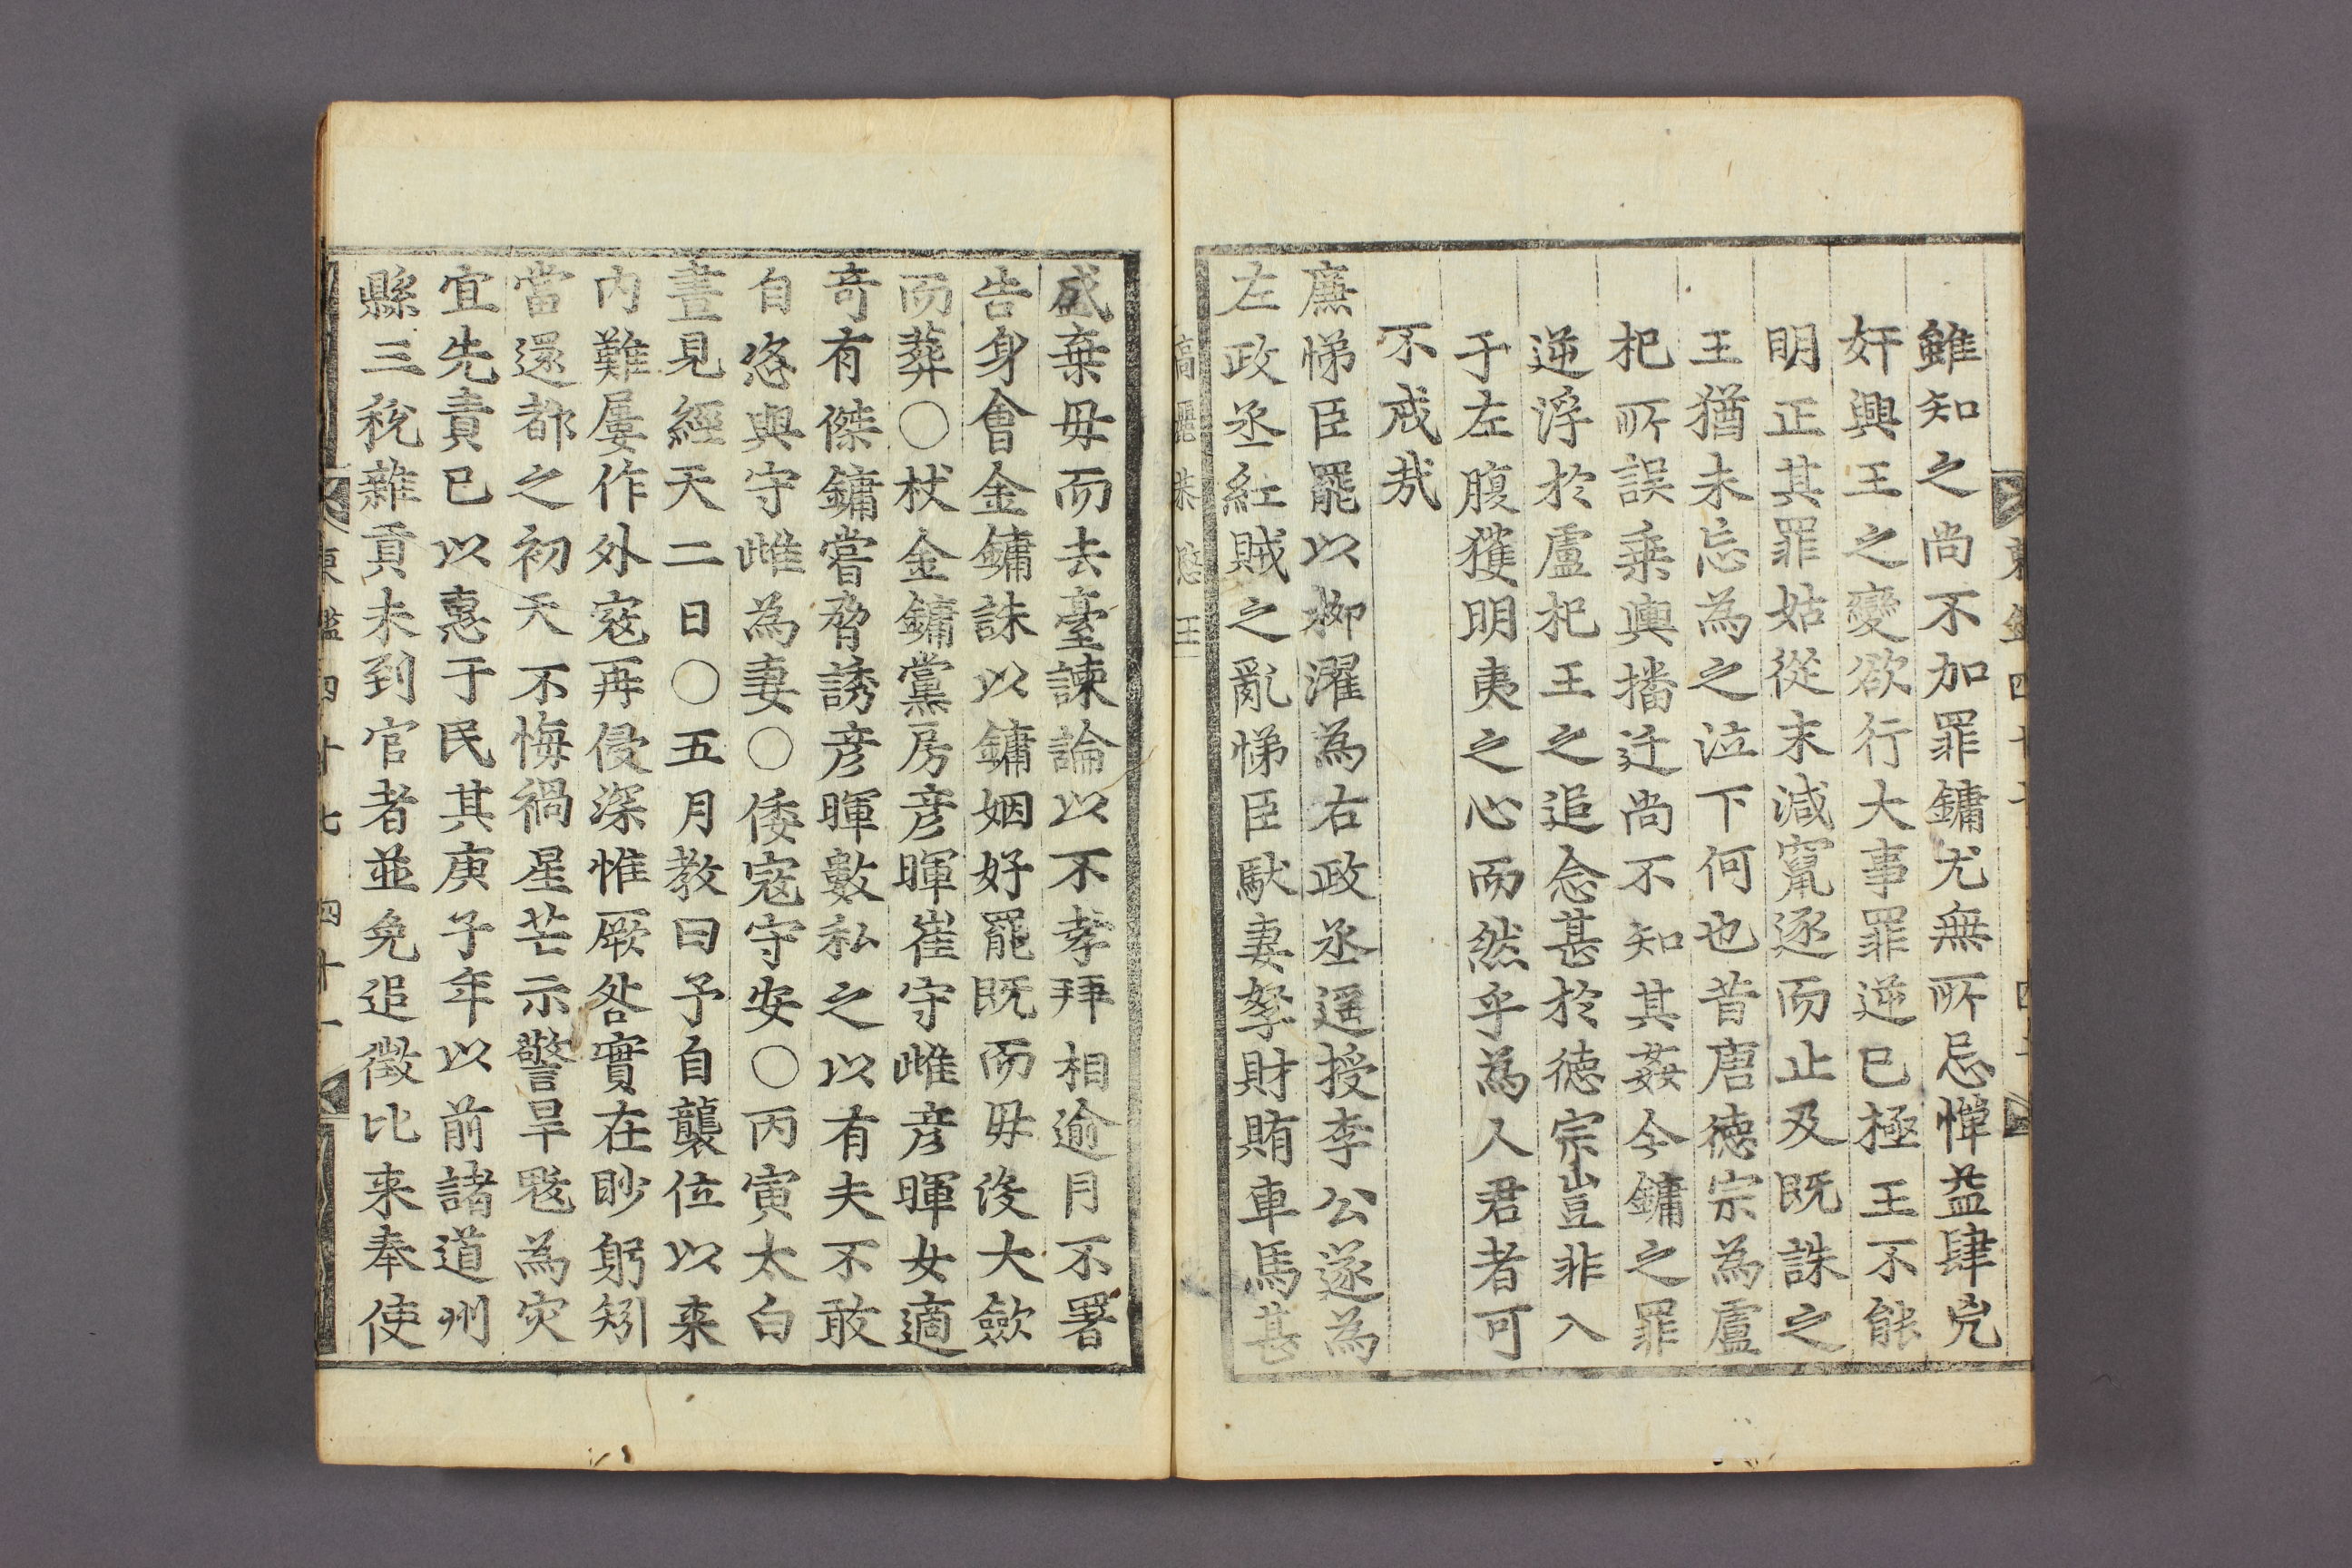 雖知之尚不加罪鏞尤無所忌憚益肆兇
奸興王之變欲行大事罪逆已極王不能
明正其罪姑從末减竄逐而止及既誅之
王猶未忘為之泣下何也昔唐德宗為盧
杞所誤乗輿播迁尚不知其姦今鏞之罪
逆浮於盧杞王之追念甚於德宗豈非入
于左腹獲明夷之心而然乎為人君者可
不戒㦲
廉悌臣罷以柳濯為右政丞遥授李公遂為
左政丞紅賊之亂悌臣馱妻孥財賄車馬甚
高麗恭愍王
盛棄母而去臺諫論以不孝拜相逾月不署
告身會金鏞誅以鏞姻好罷既而毋没大歛
而葬〇杖金鏞黨房彦暉崔守雌彦暉女適
竒有傑鏞嘗脅誘彦暉數私之以有夫不敢
自恣與守雌為妻〇倭寇守安〇丙寅太白
晝見經天二日〇五月教曰予自襲位以来
内難屢作外寇再侵深惟厥咎實在眇躬矧
當還都之初天不悔禍星芒示警旱魃為灾
宜先責已以惠于民其庚子年以前諸道州
縣三稅雜貢未到官者並免追徵比来奉使
東鑑四十七 四十一